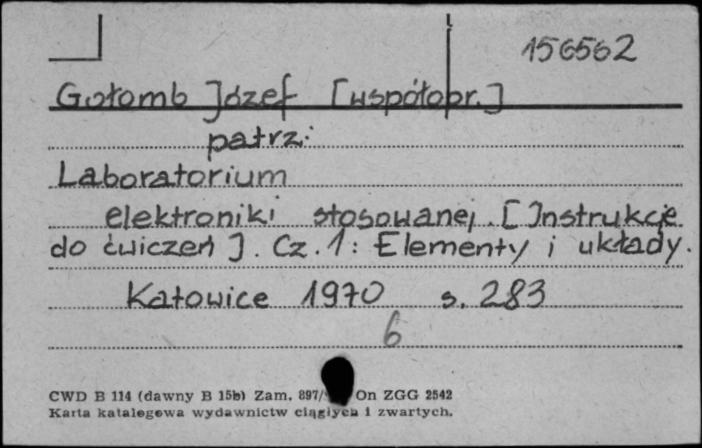 156562
Gołomb Józef [współopr.]
patrz:
Laboratorium
elektroniki stosowanej. [Instrukcje
do ćwiczeń]. Cz. 1: Elementy i układy.
Katowice 1970 s. 283
6
CWD B 114 (dawny B 15b) Zam. 897/ On ZGG 2542
Karta katalogowa wydawnictw ciągłych i zwartych.